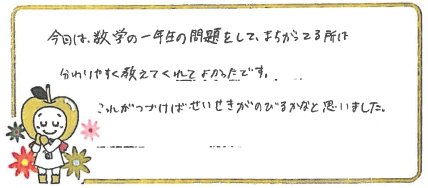 今回は、数学の一年生の問題をして、まちがってる所は
分わりやすく教えてくれてよかったです。
これがつづけばせいせきがのびるかなと思いました。